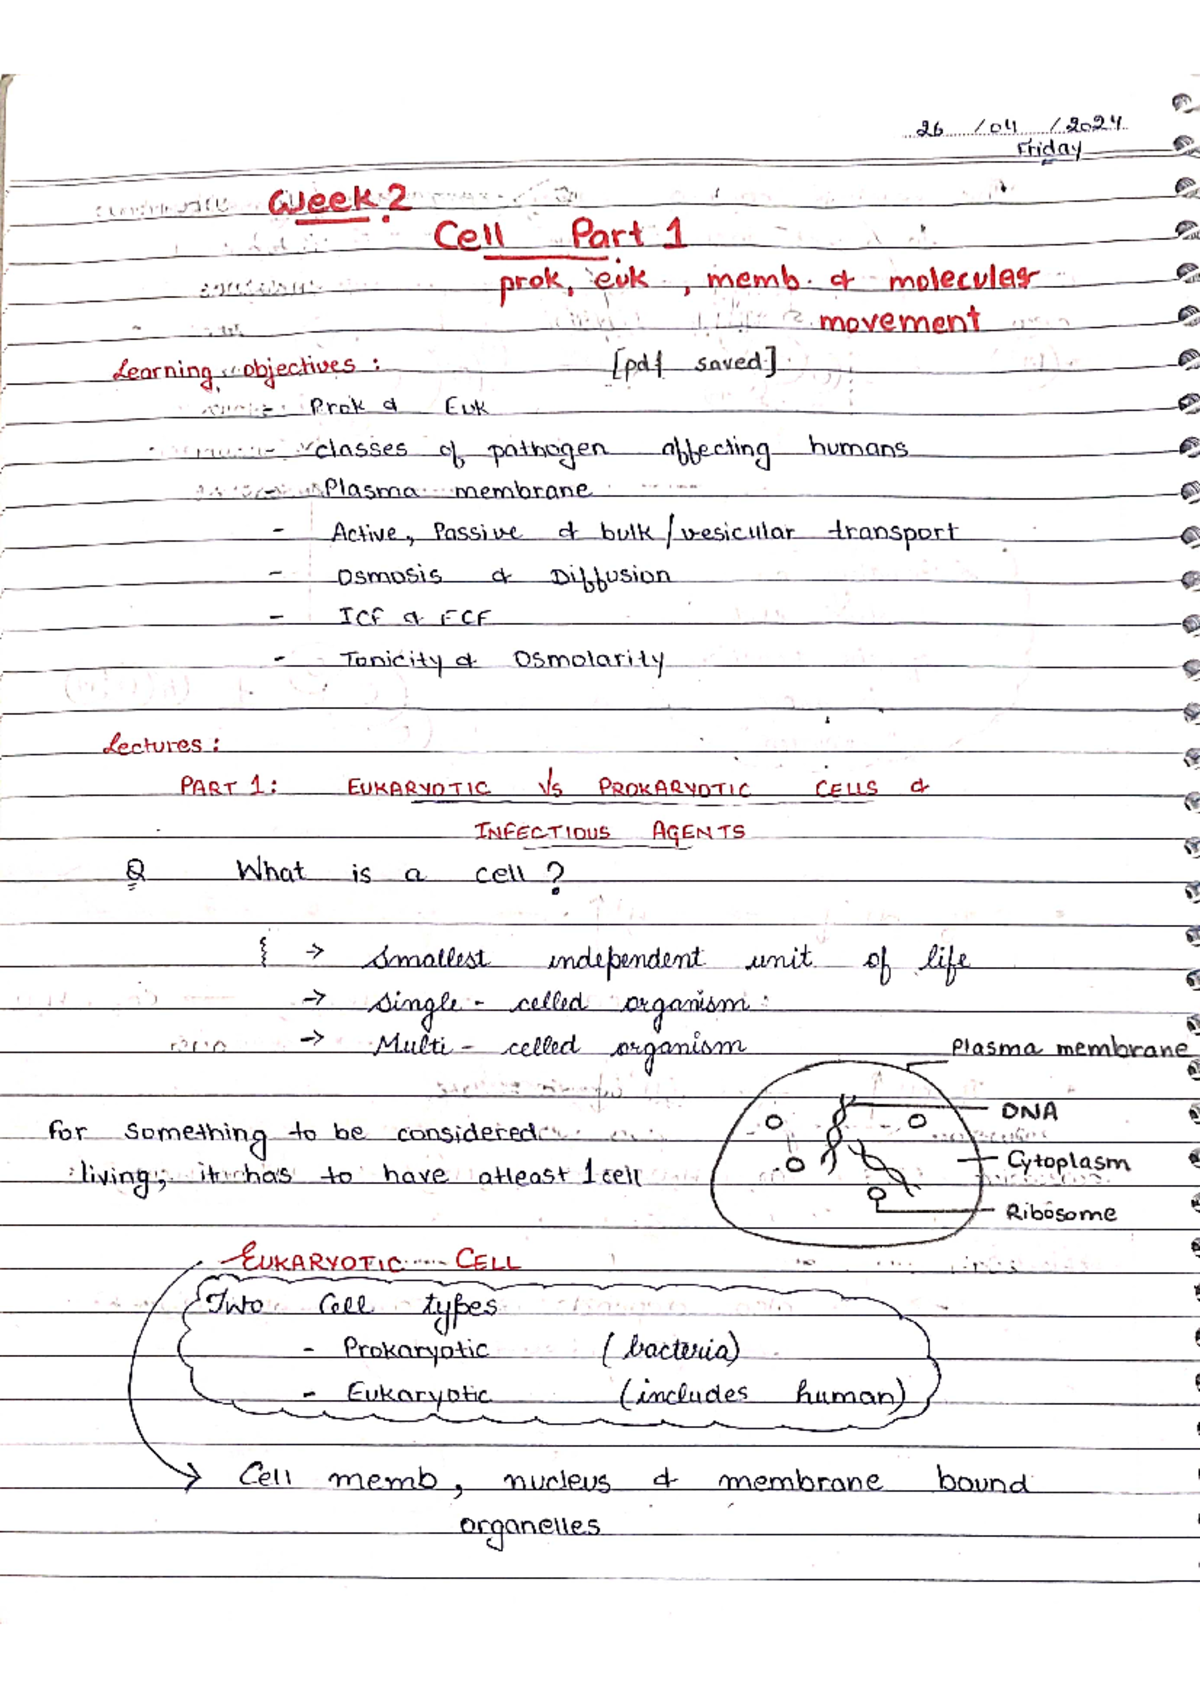 26 / 04 / 2024
Friday
Week 2
Cell Part 1
prok, euk, memb. & molecular
movement
Learning objectives : [pdf saved]
- Prok & Euk
- classes of pathogen affecting humans
- Plasma membrane
- Active, Passive & bulk / vesicular transport
- Osmosis & Diffusion
- ICF & ECF
- Tonicity & Osmolarity
Lectures :
PART 1: EUKARYOTIC V/S PROKARYOTIC CELLS &
INFECTIOUS AGENTS
Q What is a cell ?
→ Smallest independent unit of life
→ Single - celled organism
→ Multi - celled organism
Plasma membrane
DNA
for something to be considered
living, it has to have atleast 1 cell
Cytoplasm
Ribosome
EUKARYOTIC CELL
Two Cell types
- Prokaryotic (bacteria)
- Eukaryotic (includes human)
→ Cell memb, nucleus & membrane bound
organelles